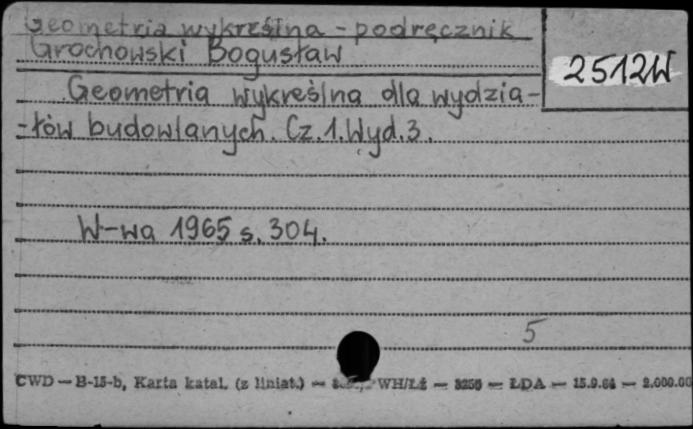 Geometria wykreślna - podręcznik
Grochowski Bogusław
2512W
Geometria wykreślna dla wydzia-
-łów budowlanych. Cz.1.Wyd.3.
W-wa 1965 s. 304.
5
CWD — B-15-b, Karta katal. (z liniat.) — WH/Łź — 3256 — ŁDA — 15.9.64 — 2.000.00